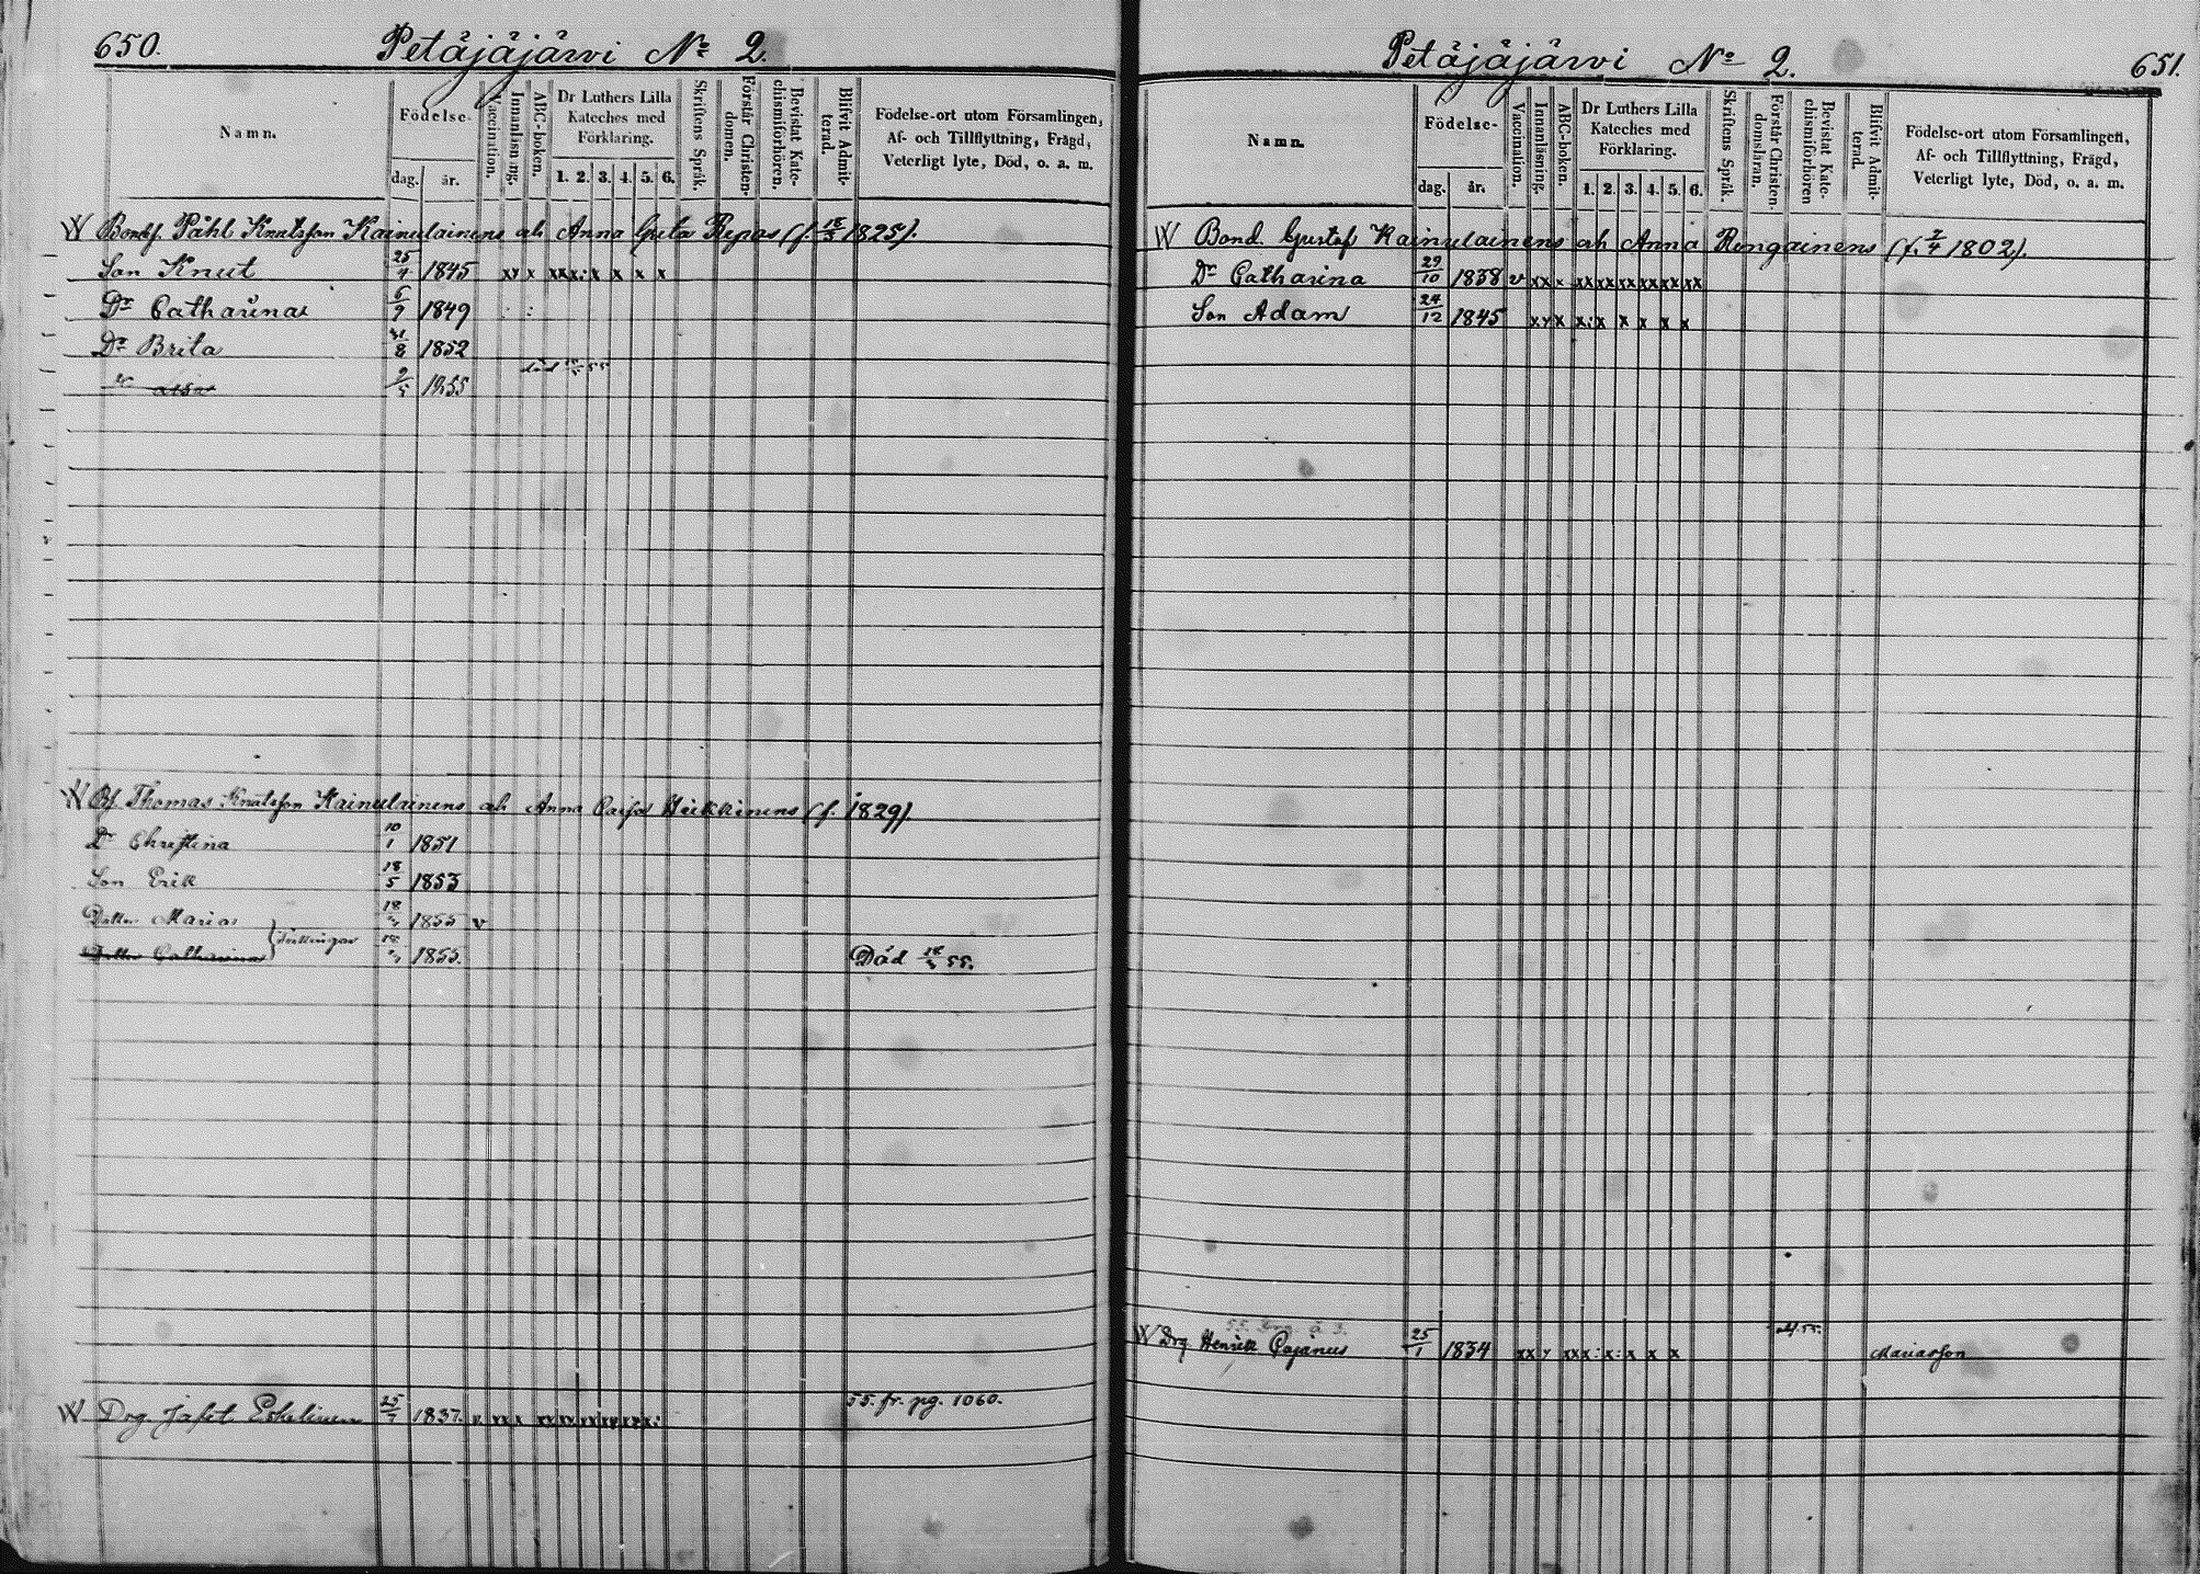 650.
Petäjäjärvi No 2.
Namn.
Födelse-
dag.
år.
Vaccination.
Innanläsning.
ABC-boken.
Dr Luthers Lilla
Kateches med
Förklaring.
1. 2. 3. 4. 5. 6.
Skriftens Språk.
Förstår Christen-
domen.
Bevistat Kate-
chismiförhören.
Blifvit Admit-
terad.
Födelse-ort utom Församlingen,
Af- och Tillflyttning, Frägd,
Veterligt lyte, Död, o. a. m.
W Bondf. Påhl Knutsson Kainulainens ah Anna Greta Repas (f. 1825).
Son Knut 25/4 1845 xx x xxx:x x x x
Dr Catharina 6/9 1849
Dr Brita 31/8 1852
1855 död 55
W Bf. Thomas Knutsson Kainulainens ah Anna Caisa Heikkinens (f. 1829).
Dr Christina 10/1 1851
Son Erik 18/5 1853
Dotter Maria 1855 v
Tvillingar
Dotter Catharina 1855. Död 55.
W Drg. Jafet Eskelinen 25/7 1837. v xx x 55. fr. pg. 1060.
Petäjäjärvi No 2.
651.
Namn.
Födelse-
dag.
år.
Vaccination.
Innanläsning.
ABC-boken.
Dr Luthers Lilla
Kateches med
Förklaring.
1. 2. 3. 4. 5. 6.
Skriftens Språk.
Förstår Christen-
domsläran.
Bevistat Kate-
chismiförhören
Blifvit Admit-
terad.
Födelse-ort utom Församlingen,
Af- och Tillflyttning, Frägd,
Veterligt lyte, Död, o. a. m.
W Bond. Gustaf Kainulainens ah Anna Rengainens (f. 2/4 1802).
Dr Catharina 29/10 1838 v xx x xx xx xx xx xx xx
Son Adam 24/12 1845 xx x x:x x x x x
W Drg. Henrik Pajanen 25/1 1834